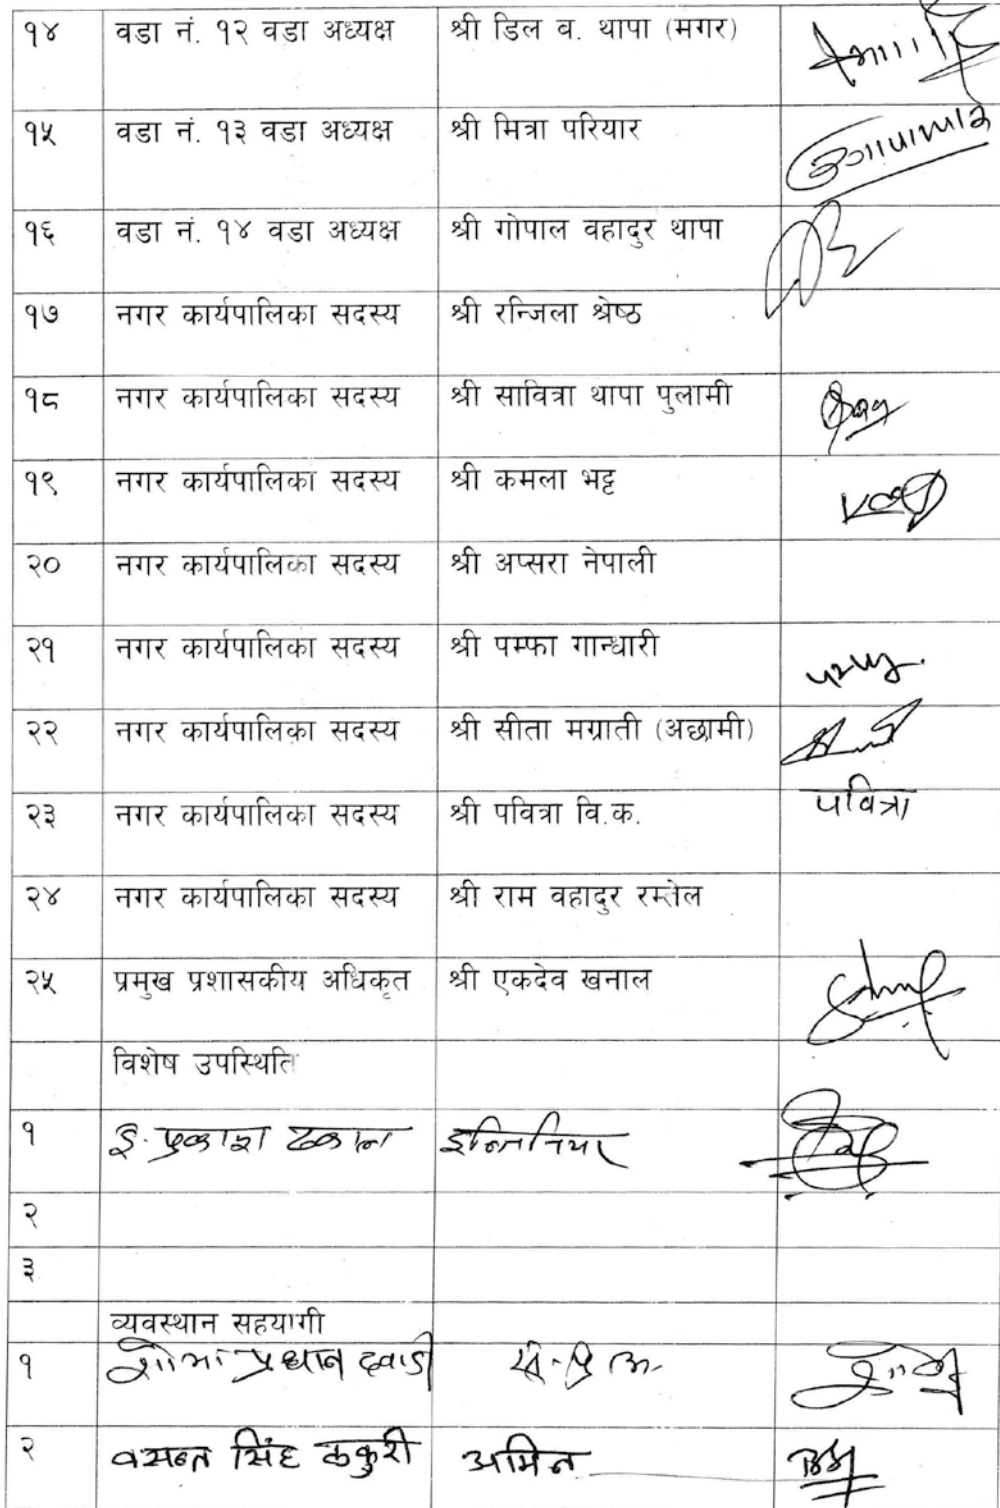 १४ वडा नं. १२ वडा अध्यक्ष श्री डिल व. थापा (मगर)
१५ वडा नं. १३ वडा अध्यक्ष श्री मित्रा परियार
१६ वडा नं. १४ वडा अध्यक्ष श्री गोपाल वहादुर थापा
१७ नगर कार्यपालिका सदस्य श्री रन्जिला श्रेष्ठ
१८ नगर कार्यपालिका सदस्य श्री सावित्रा थापा पुलामी
१९ नगर कार्यपालिका सदस्य श्री कमला भट्ट
२० नगर कार्यपालिका सदस्य श्री अप्सरा नेपाली
२१ नगर कार्यपालिका सदस्य श्री पम्फा गान्धारी
२२ नगर कार्यपालिका सदस्य श्री सीता मग्राती (अछामी)
२३ नगर कार्यपालिका सदस्य श्री पवित्रा वि.क. पवित्रा
२४ नगर कार्यपालिका सदस्य श्री राम वहादुर रम्तेल
२५ प्रमुख प्रशासकीय अधिकृत श्री एकदेव खनाल
विशेष उपस्थिति
१ इ. प्रकाश ढकाल इन्जिनियर
२
३
व्यवस्थान सहयागी
१ प्रधान
२ वसन्त सिंह ठकुरी अमिन